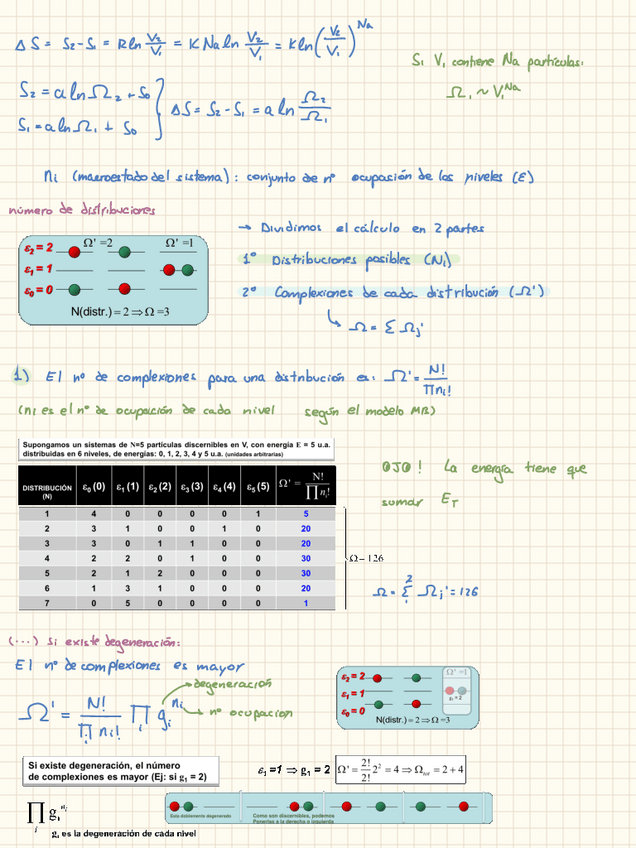 ΔS = S₂-S₁ = R ln V₂/V₁ = K Na ln V₂/V₁ = K ln (V₂/V₁)^Na
Si V₁ contiene Na partículas:
Ω₁ ~ V₁^Na
S₂ = a ln Ω₂ + S₀
S₁ = a ln Ω₁ + S₀
ΔS = S₂-S₁ = a ln Ω₂/Ω₁
Ni (macroestado del sistema): conjunto de nº ocupación de los niveles (E)
número de distribuciones
→ Dividimos el cálculo en 2 partes
1º Distribuciones posibles (Ni)
2º Complexiones de cada distribución (Ω')
↳ Ω = Σ Ωj'
Ω' =2 Ω' =1
ε₂ = 2
ε₁ = 1
ε₀ = 0
N(distr.) = 2 ⇒ Ω =3
1) El nº de complexiones para una distribución es: Ω' = N!/∏ni!
(ni es el nº de ocupación de cada nivel según el modelo MB)
Supongamos un sistemas de N=5 partículas discernibles en V, con energía E = 5 u.a.
distribuidas en 6 niveles, de energías: 0, 1, 2, 3, 4 y 5 u.a. (unidades arbitrarias)
DISTRIBUCIÓN (N) ε₀ (0) ε₁ (1) ε₂ (2) ε₃ (3) ε₄ (4) ε₅ (5) Ω' = N!/∏ni!
1 4 0 0 0 0 1 5
2 3 1 0 0 1 0 20
3 3 0 1 1 0 0 20
4 2 2 0 1 0 0 30
5 2 1 2 0 0 0 30
6 1 3 1 0 0 0 20
7 0 5 0 0 0 0 1
Ω=126
OJO! La energía tiene que
sumar E_T
Ω = Σ Ωj' = 126
(...) Si existe degeneración:
El nº de complexiones es mayor
Ω' = N!/∏ni! ∏ gi^ni
→ degeneración
→ nº ocupacion
Ω' =1
ε₂ = 2
ε₁ = 1
g₁ = 2
ε₀ = 0
N(distr.) = 2 ⇒ Ω =3
Si existe degeneración, el número
de complexiones es mayor (Ej: si g₁ = 2)
ε₁ =1 ⇒ g₁ = 2
Ω' = 2!/2! 2² = 4 ⇒ Ω_tot = 2 + 4
∏ gi^ni
gi es la degeneración de cada nivel
Esta doblemente degenerado
Como son discernibles, podemos
Ponerlas a la derecha o izquierda